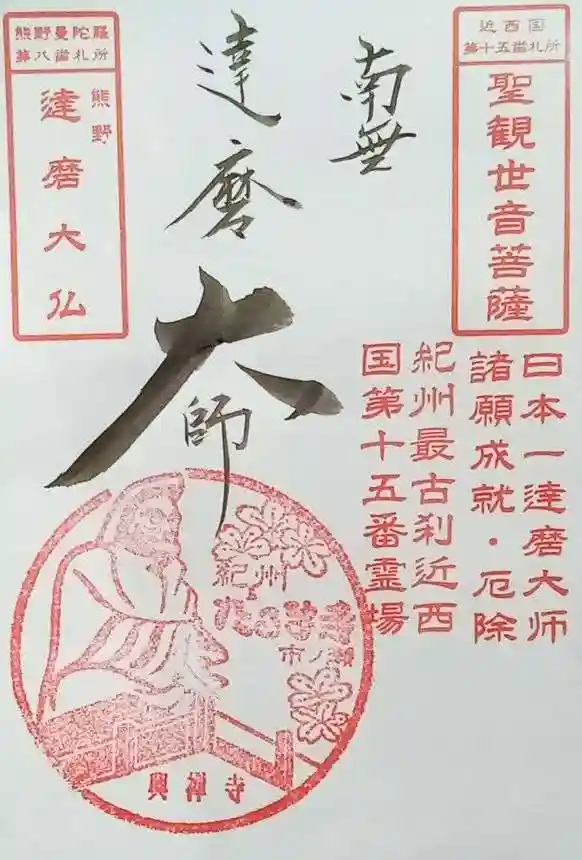 近西国
第十五番札所
聖観世音菩薩
日本一達磨大师
諸願成就・厄除
紀州最古刹近西
国第十五番霊場
南無
達磨大師
熊野曼陀羅
第八番札所
熊野
達磨大仏
紀州
市ノ瀬
興禅寺